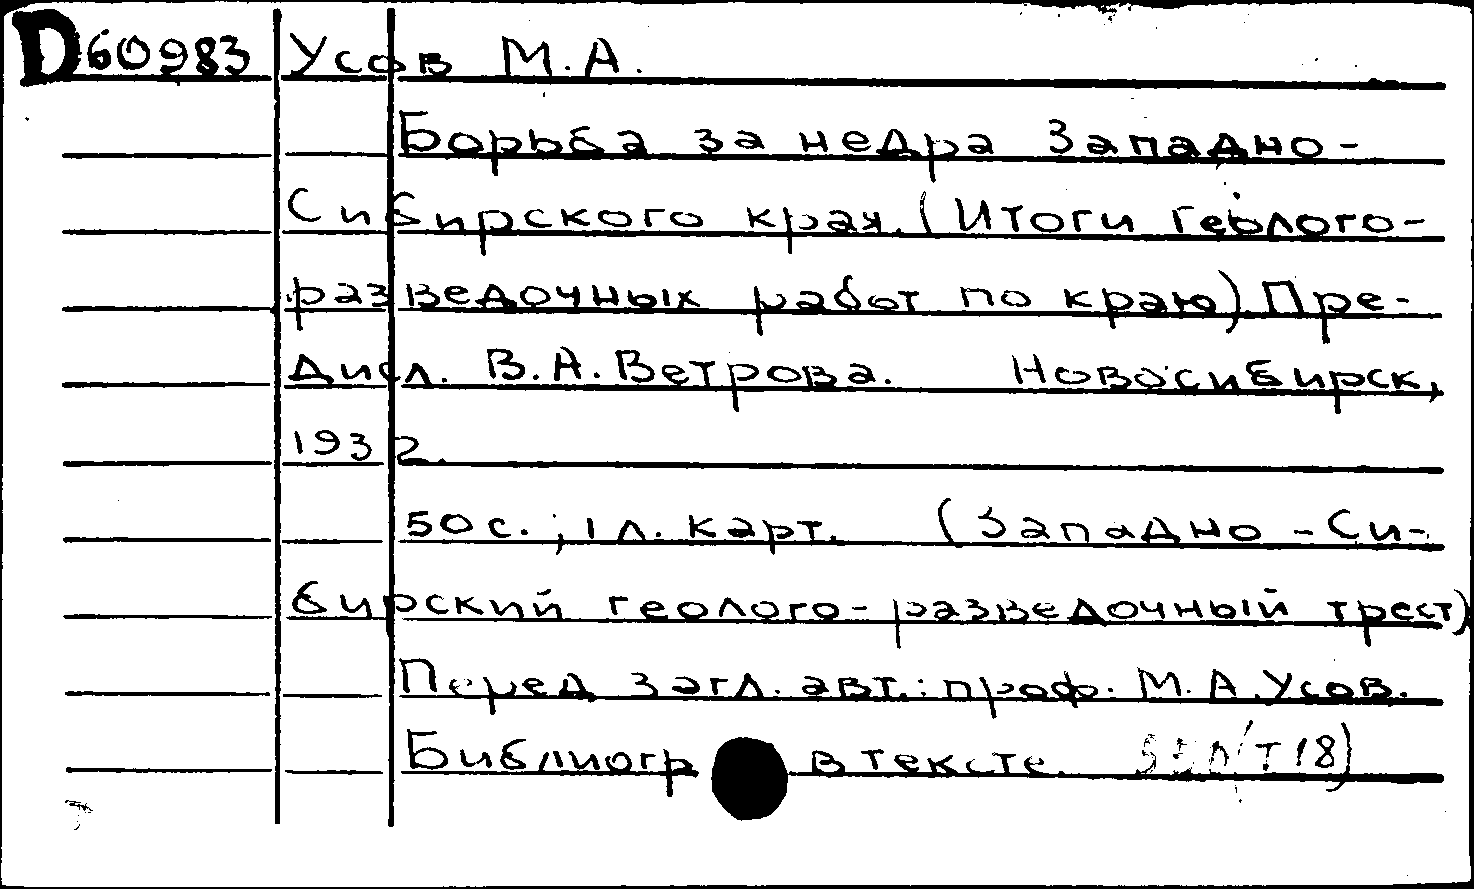 D60983 Усов М.А.
Борьба за недра Западно-
Сибирского края. (Итоги геолого-
разведочных работ по краю). Пре-
дисл. В.А. Ветрова. Новосибирск,
1932.
50 с.; 1 л. карт. (Западно-Си-
бирский геолого-разведочный трест)
Перед загл. авт.: проф. М.А. Усов.
Библиогр в тексте.